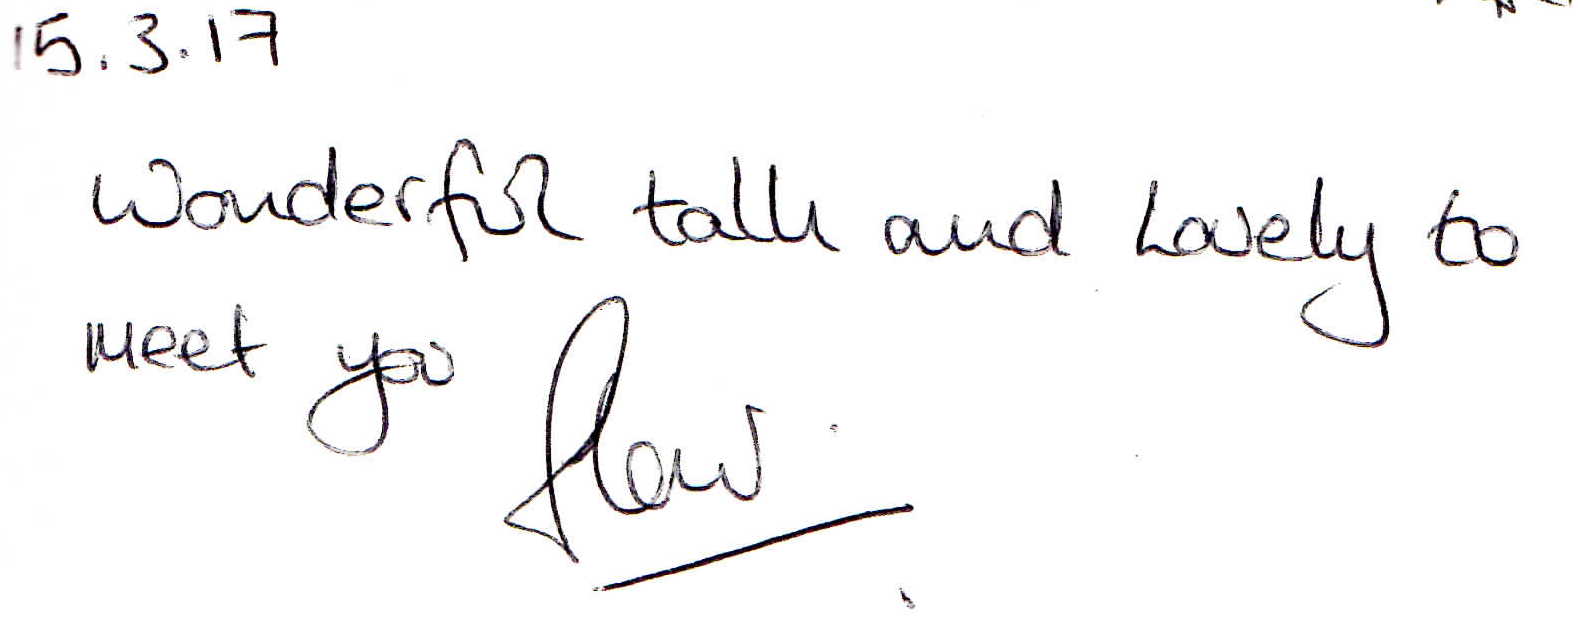 15.3.17
Wonderful talk and Lovely to
meet you